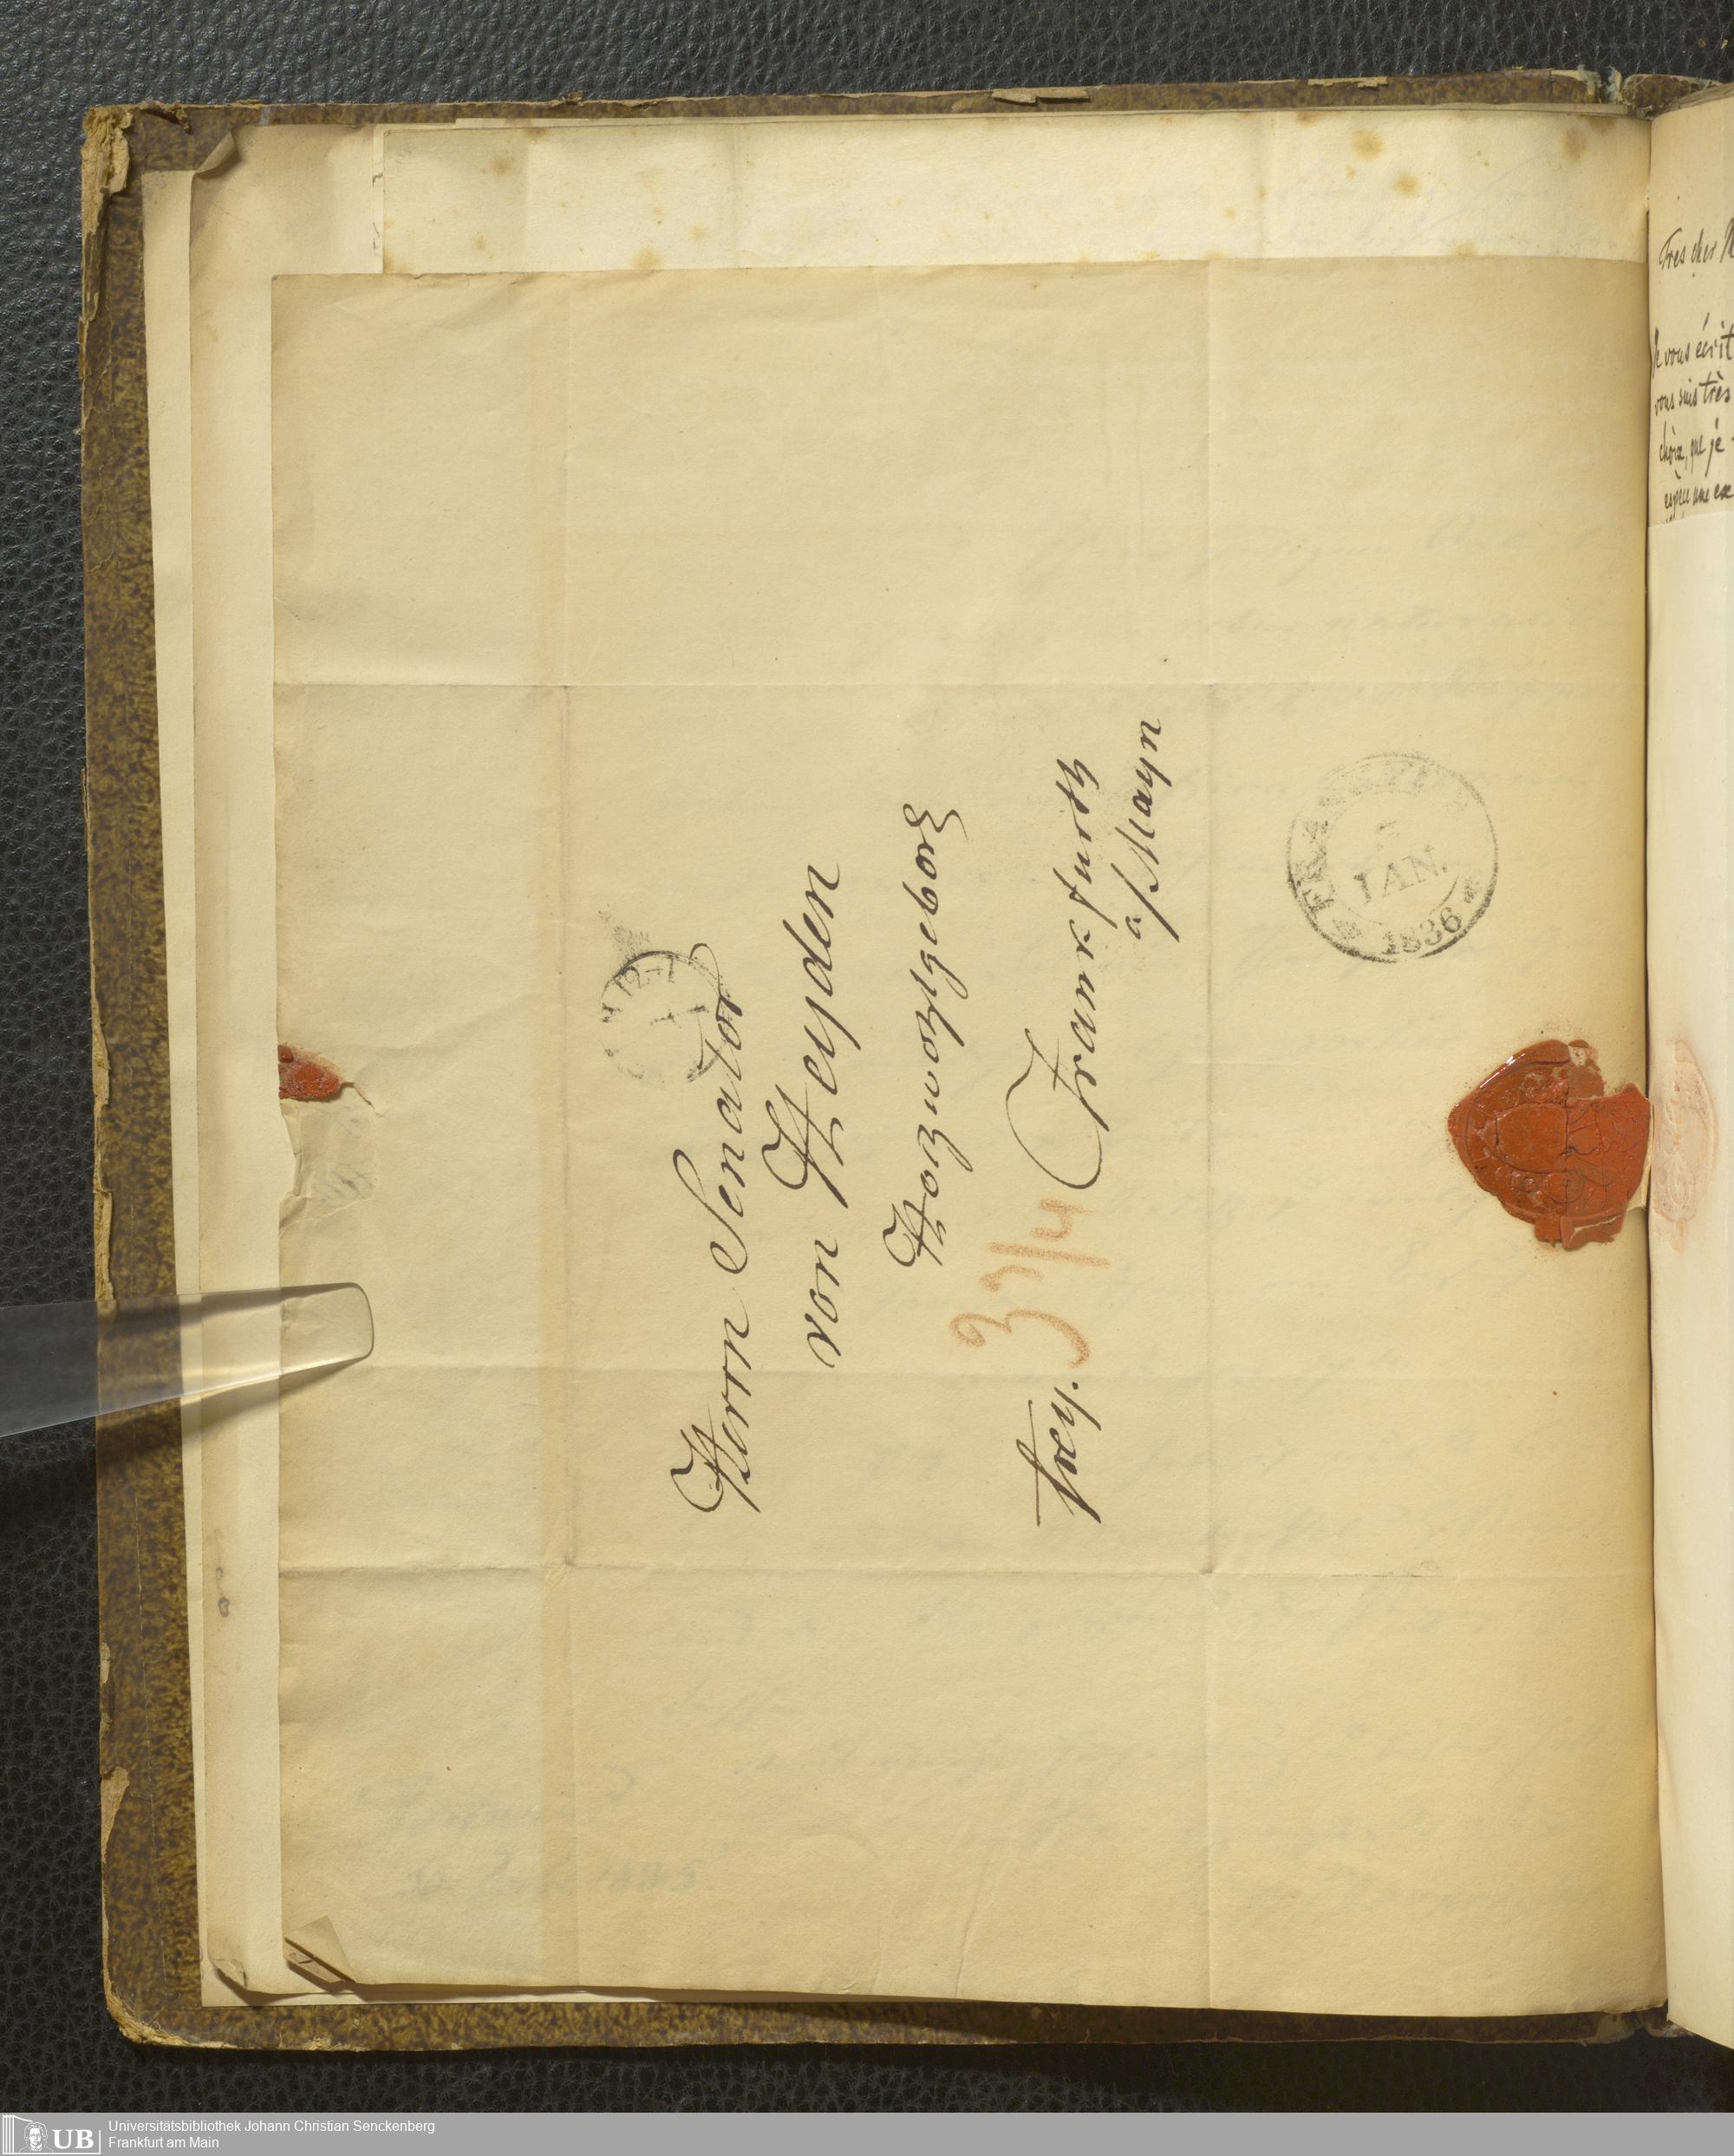 Herrn Senator
von Heyden
Hochwohlgebor
frey. 3 3/4 Frankfurth
a/Mayn
JAN.
1836
Tres cher
Je vous écrit
vous suis très
choix, que je
espèce une ex
UB
Universitätsbibliothek Johann Christian Senckenberg
Frankfurt am Main